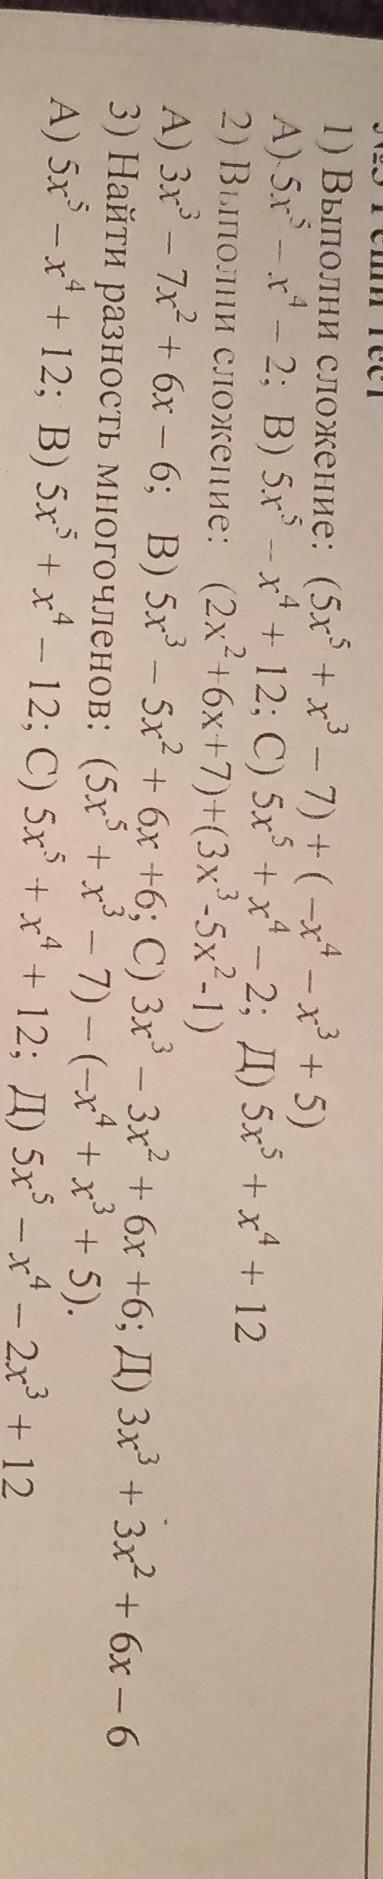 1) Выполни сложение: (5x⁵ + x³ – 7) + (–x⁴ – x³ + 5)
А) 5x⁵ – x⁴ – 2; В) 5x⁵ – x⁴ + 12; С) 5x⁵ + x⁴ – 2; Д) 5x⁵ + x⁴ + 12
2) Выполни сложение: (2x²+6x+7)+(3x³-5x²-1)
А) 3x³ – 7x² + 6x – 6; В) 5x³ – 5x² + 6x +6; С) 3x³ – 3x² + 6x +6; Д) 3x³ + 3x² + 6x – 6
3) Найти разность многочленов: (5x⁵ + x³ – 7) – (–x⁴ + x³ + 5).
А) 5x⁵ – x⁴ + 12; В) 5x⁵ + x⁴ – 12; С) 5x⁵ + x⁴ + 12; Д) 5x⁵ – x⁴ – 2x³ + 12